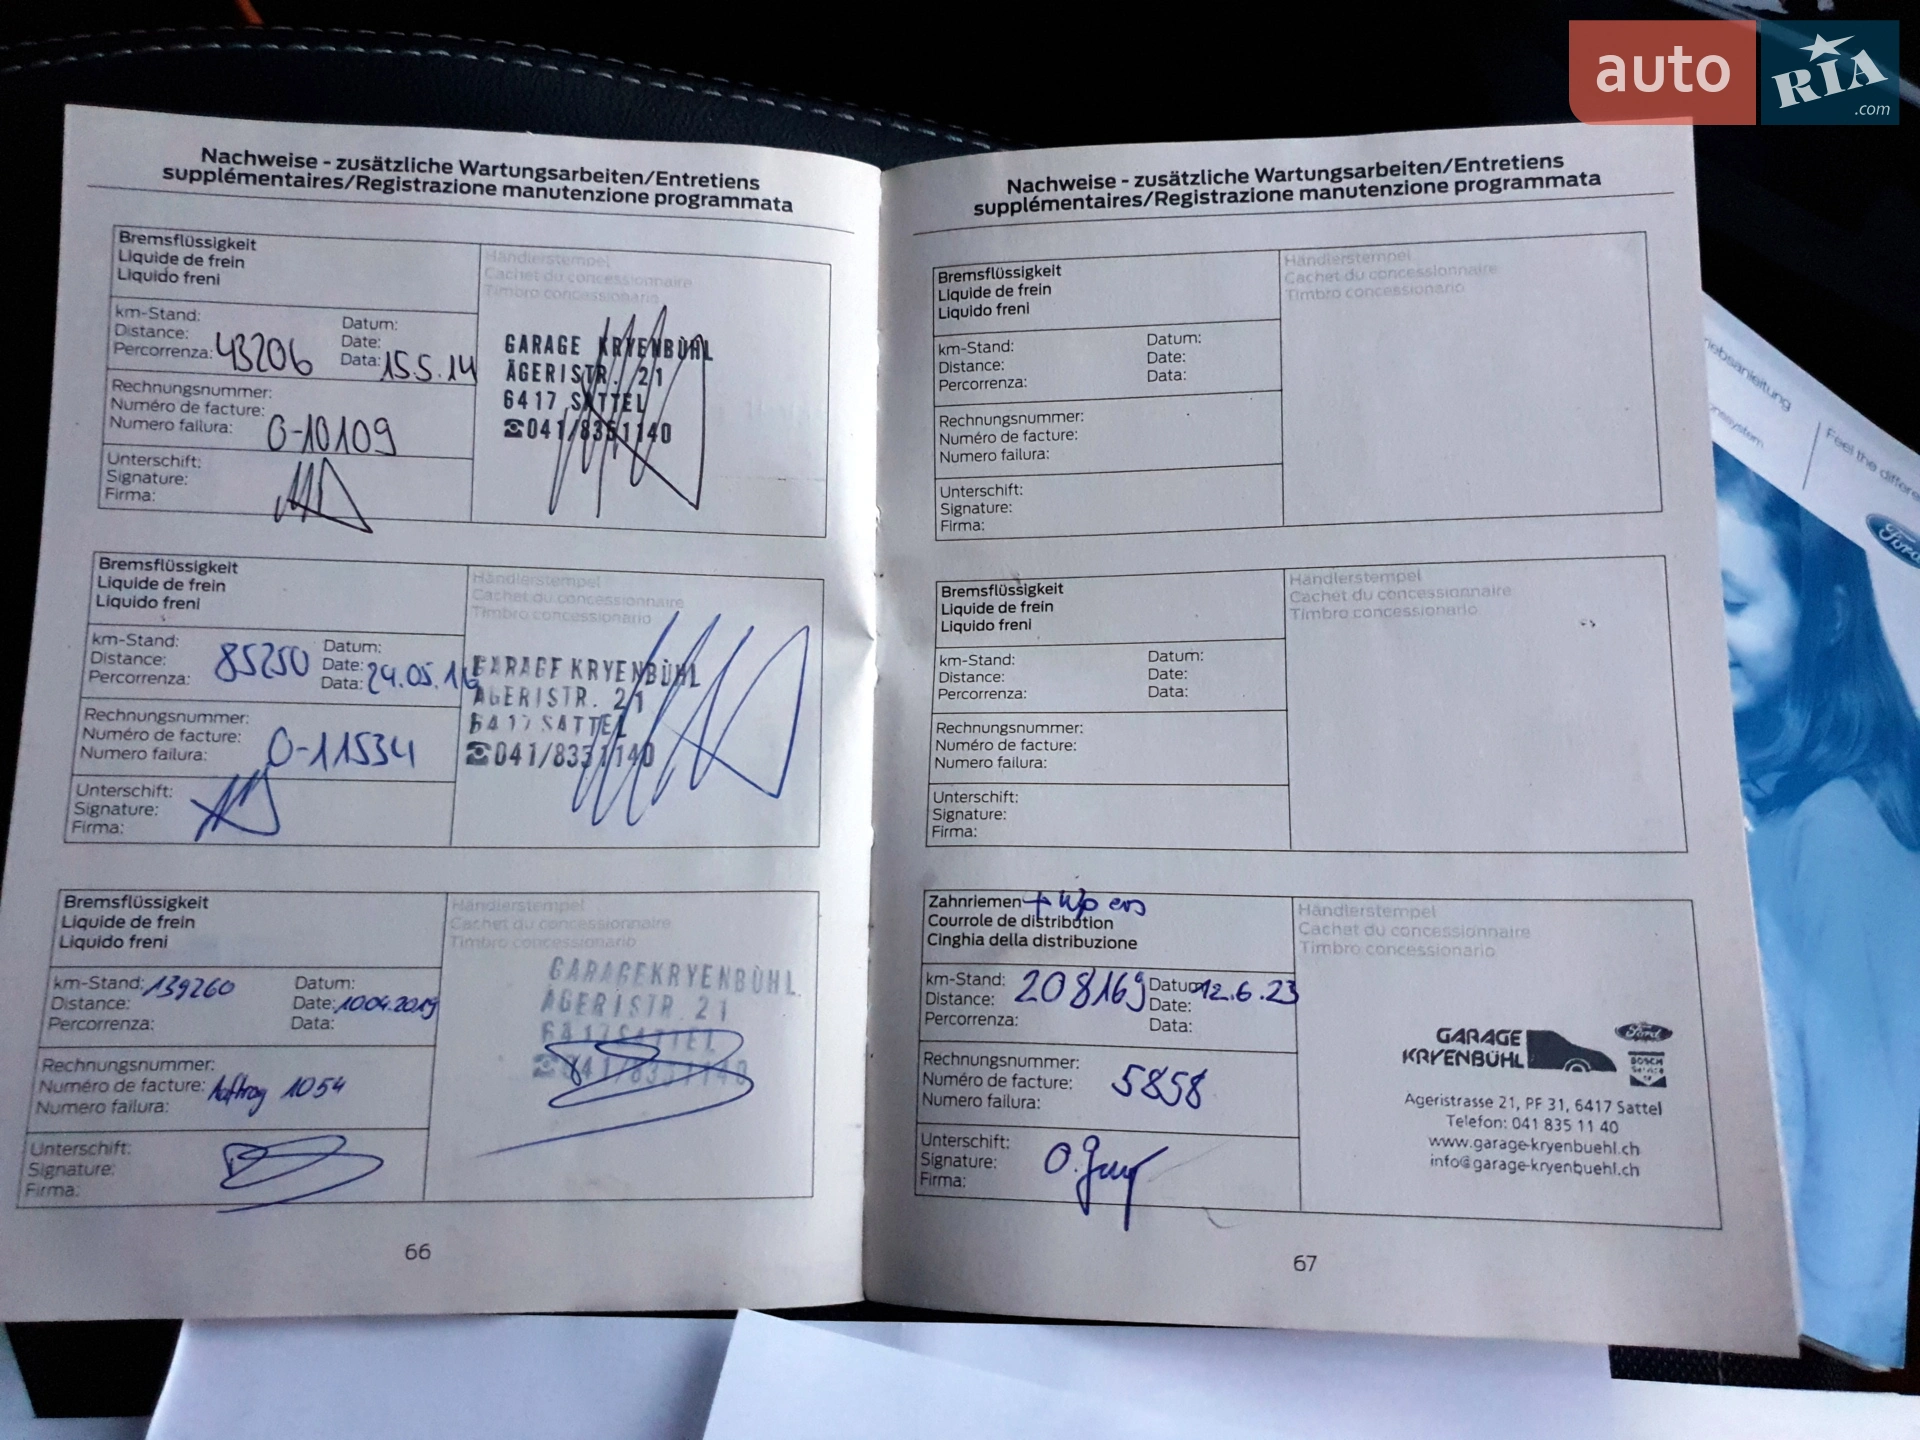 auto
RIA
.com
Nachweise - zusätzliche Wartungsarbeiten/Entretiens
supplémentaires/Registrazione manutenzione programmata
Bremsflüssigkeit
Liquide de frein
Liquido freni
Händlerstempel
Cachet du concessionnaire
Timbro concessionario
km-Stand:
Distance:
Percorrenza: 43206
Datum:
Date:
Data: 15.5.14
GARAGE KRYENBÜHL
ÄGERISTR. 21
6417 SATTEL
☎041/8351140
Rechnungsnummer:
Numéro de facture:
Numero failura: 0-10109
Unterschift:
Signature:
Firma:
Bremsflüssigkeit
Liquide de frein
Liquido freni
Händlerstempel
Cachet du concessionnaire
Timbro concessionario
km-Stand:
Distance: 85250
Percorrenza:
Datum:
Date: 24.05.16
Data:
GARAGE KRYENBÜHL
ÄGERISTR. 21
6417 SATTEL
☎041/8351140
Rechnungsnummer:
Numéro de facture:
Numero failura: 0-11534
Unterschift:
Signature:
Firma:
Bremsflüssigkeit
Liquide de frein
Liquido freni
Händlerstempel
Cachet du concessionnaire
Timbro concessionario
km-Stand: 139260
Distance:
Percorrenza:
Datum:
Date: 10.04.2019
Data:
GARAGE KRYENBÜHL
ÄGERISTR. 21
6417 SATTEL
☎041/8351140
Rechnungsnummer:
Numéro de facture: Auftrag 1054
Numero failura:
Unterschift:
Signature:
Firma:
66
Nachweise - zusätzliche Wartungsarbeiten/Entretiens
supplémentaires/Registrazione manutenzione programmata
Bremsflüssigkeit
Liquide de frein
Liquido freni
Händlerstempel
Cachet du concessionnaire
Timbro concessionario
km-Stand:
Distance:
Percorrenza:
Datum:
Date:
Data:
Rechnungsnummer:
Numéro de facture:
Numero failura:
Unterschift:
Signature:
Firma:
Bremsflüssigkeit
Liquide de frein
Liquido freni
Händlerstempel
Cachet du concessionnaire
Timbro concessionario
km-Stand:
Distance:
Percorrenza:
Datum:
Date:
Data:
Rechnungsnummer:
Numéro de facture:
Numero failura:
Unterschift:
Signature:
Firma:
Zahnriemen + Wp ers
Courrole de distribution
Cinghia della distribuzione
Händlerstempel
Cachet du concessionnaire
Timbro concessionario
km-Stand: 208169
Distance:
Percorrenza:
Datum: 12.6.23
Date:
Data:
Rechnungsnummer:
Numéro de facture: 5858
Numero failura:
Unterschift:
Signature:
Firma:
GARAGE
KRYENBÜHL
Ford
BOSCH
Service
Ägeristrasse 21, PF 31, 6417 Sattel
Telefon: 041 835 11 40
www.garage-kryenbuehl.ch
info@garage-kryenbuehl.ch
67
Feel the
Ford